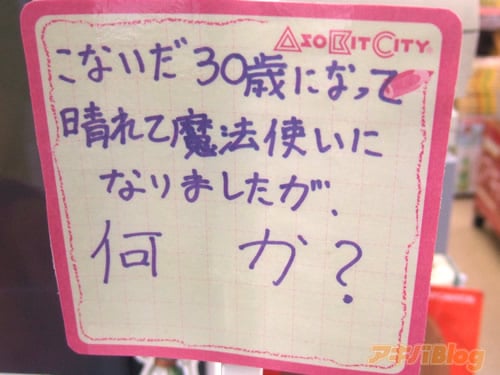 AsoBitCity
こないだ30歳になって
晴れて魔法使いに
なりましたが、
何か?
アキバBlog